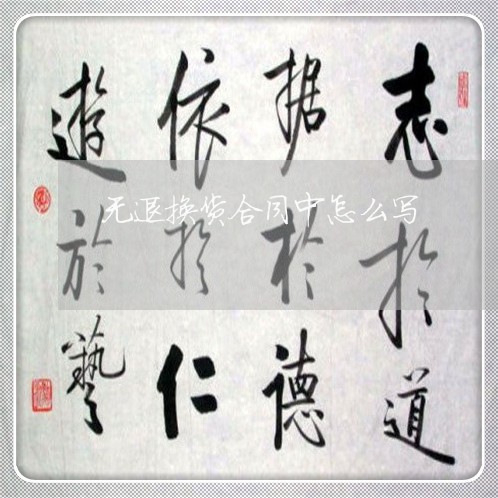 志於道
据於德
依於仁
遊於藝
无退换货合同中怎么写